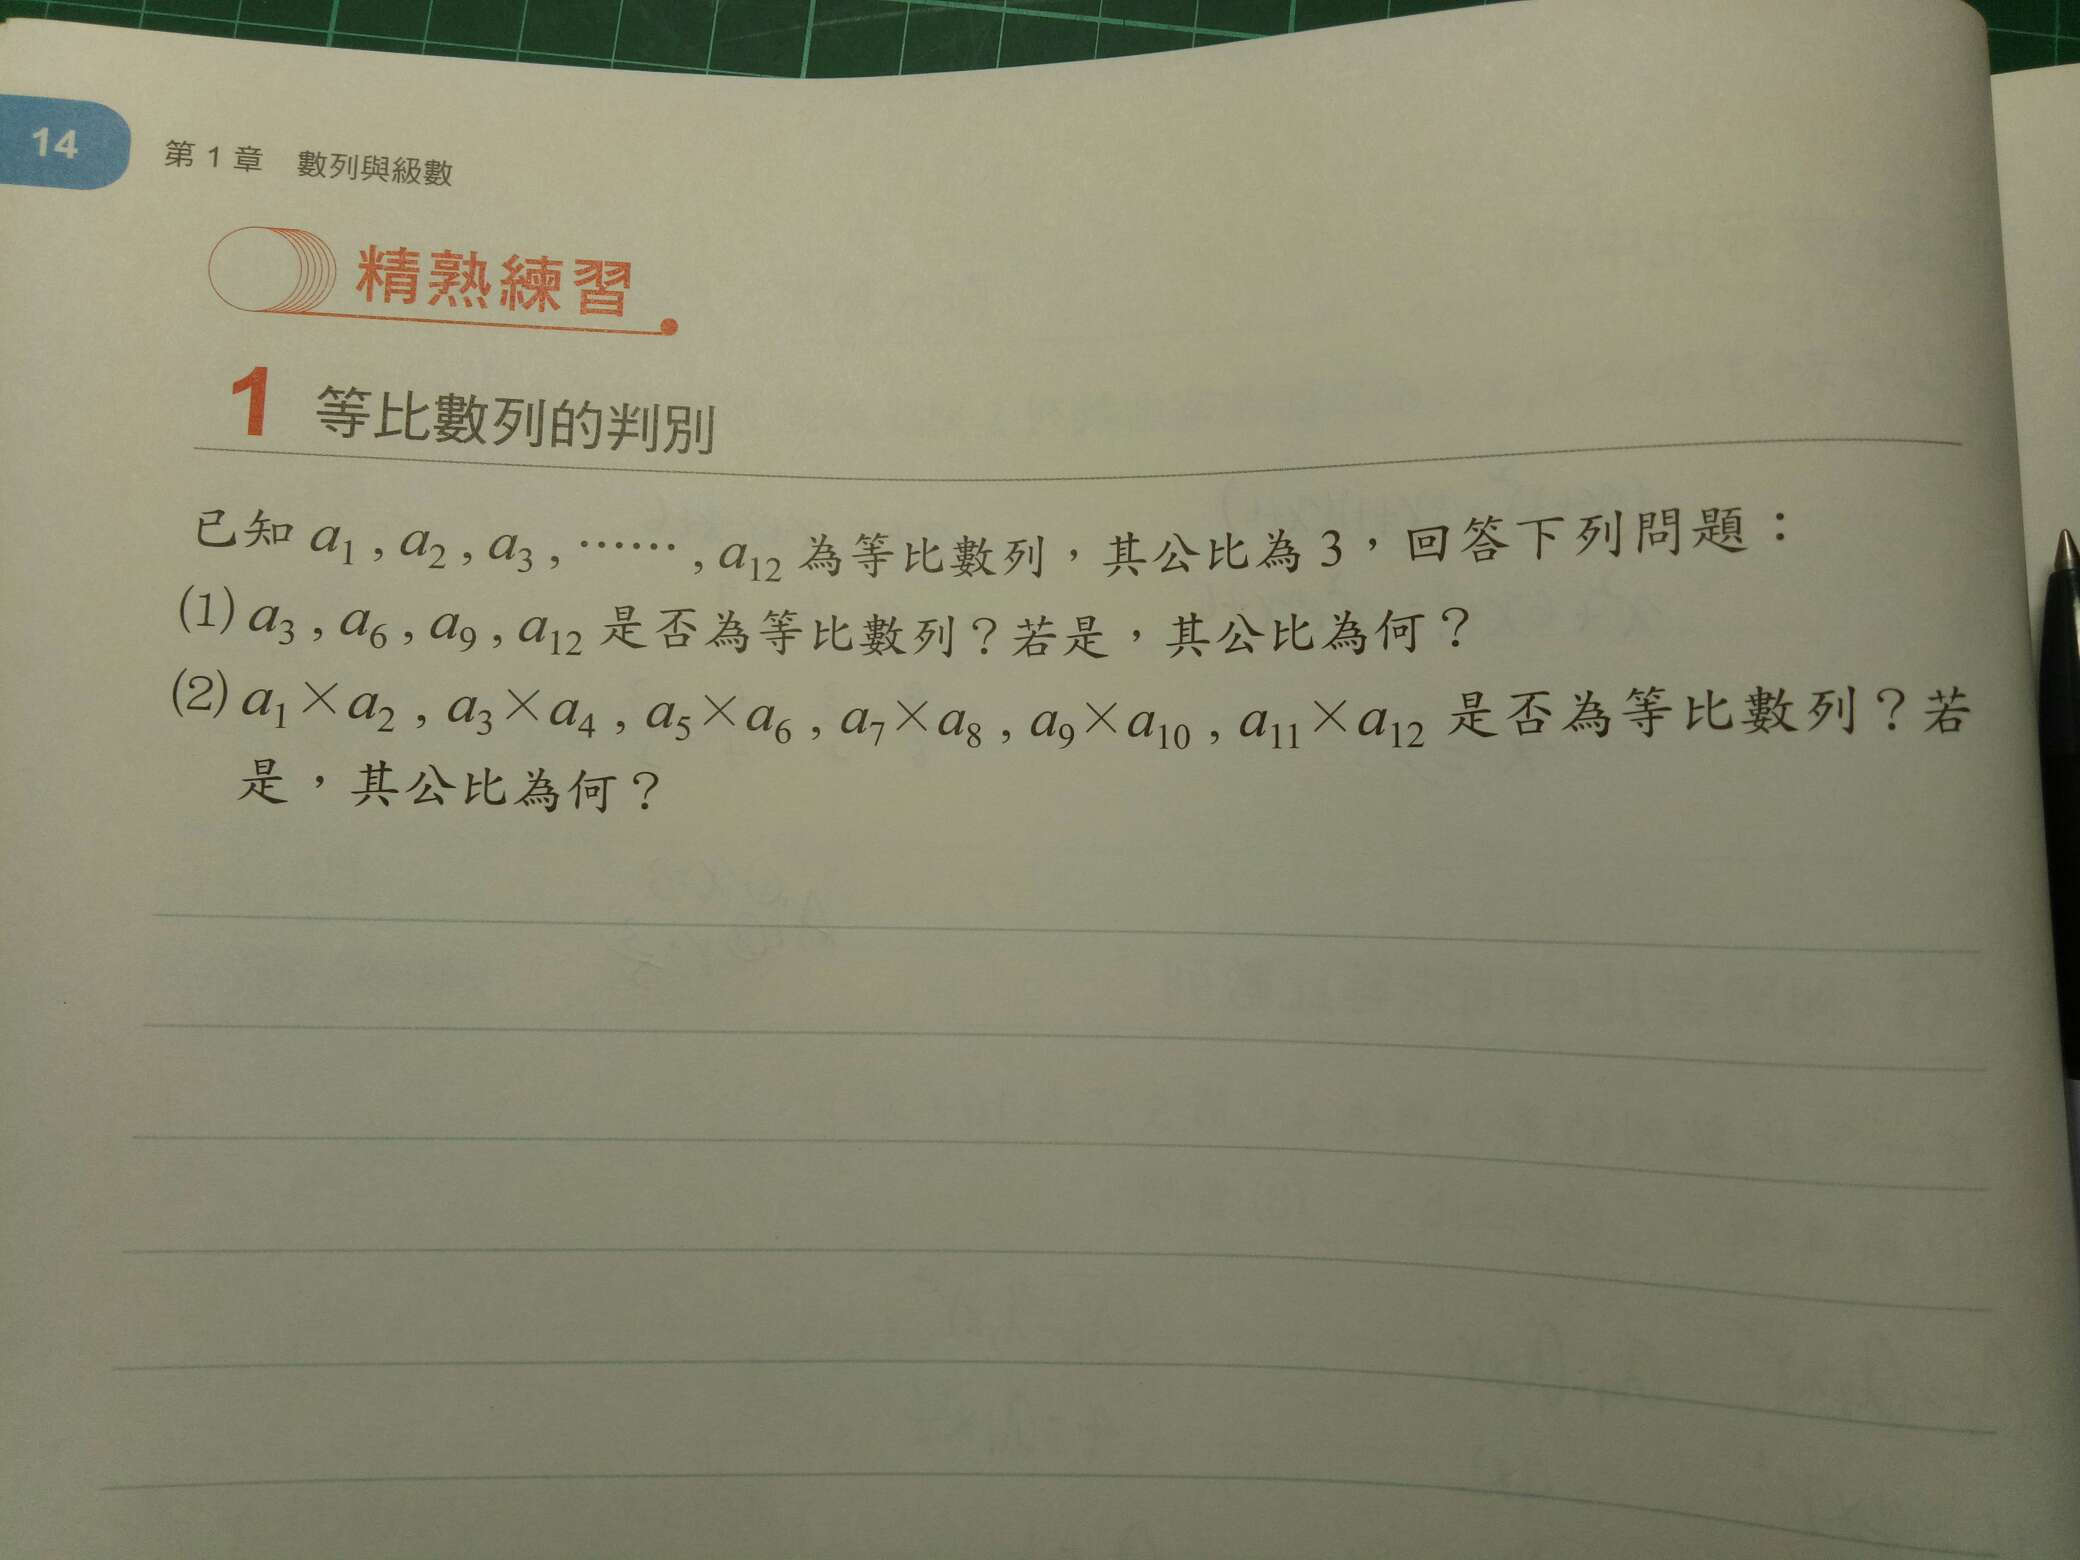 14
第 1 章 數列與級數
精熟練習
1 等比數列的判別
已知 a₁ , a₂ , a₃ , …… , a₁₂ 為等比數列，其公比為 3，回答下列問題：
(1) a₃ , a₆ , a₉ , a₁₂ 是否為等比數列？若是，其公比為何？
(2) a₁×a₂ , a₃×a₄ , a₅×a₆ , a₇×a₈ , a₉×a₁₀ , a₁₁×a₁₂ 是否為等比數列？若
是，其公比為何？